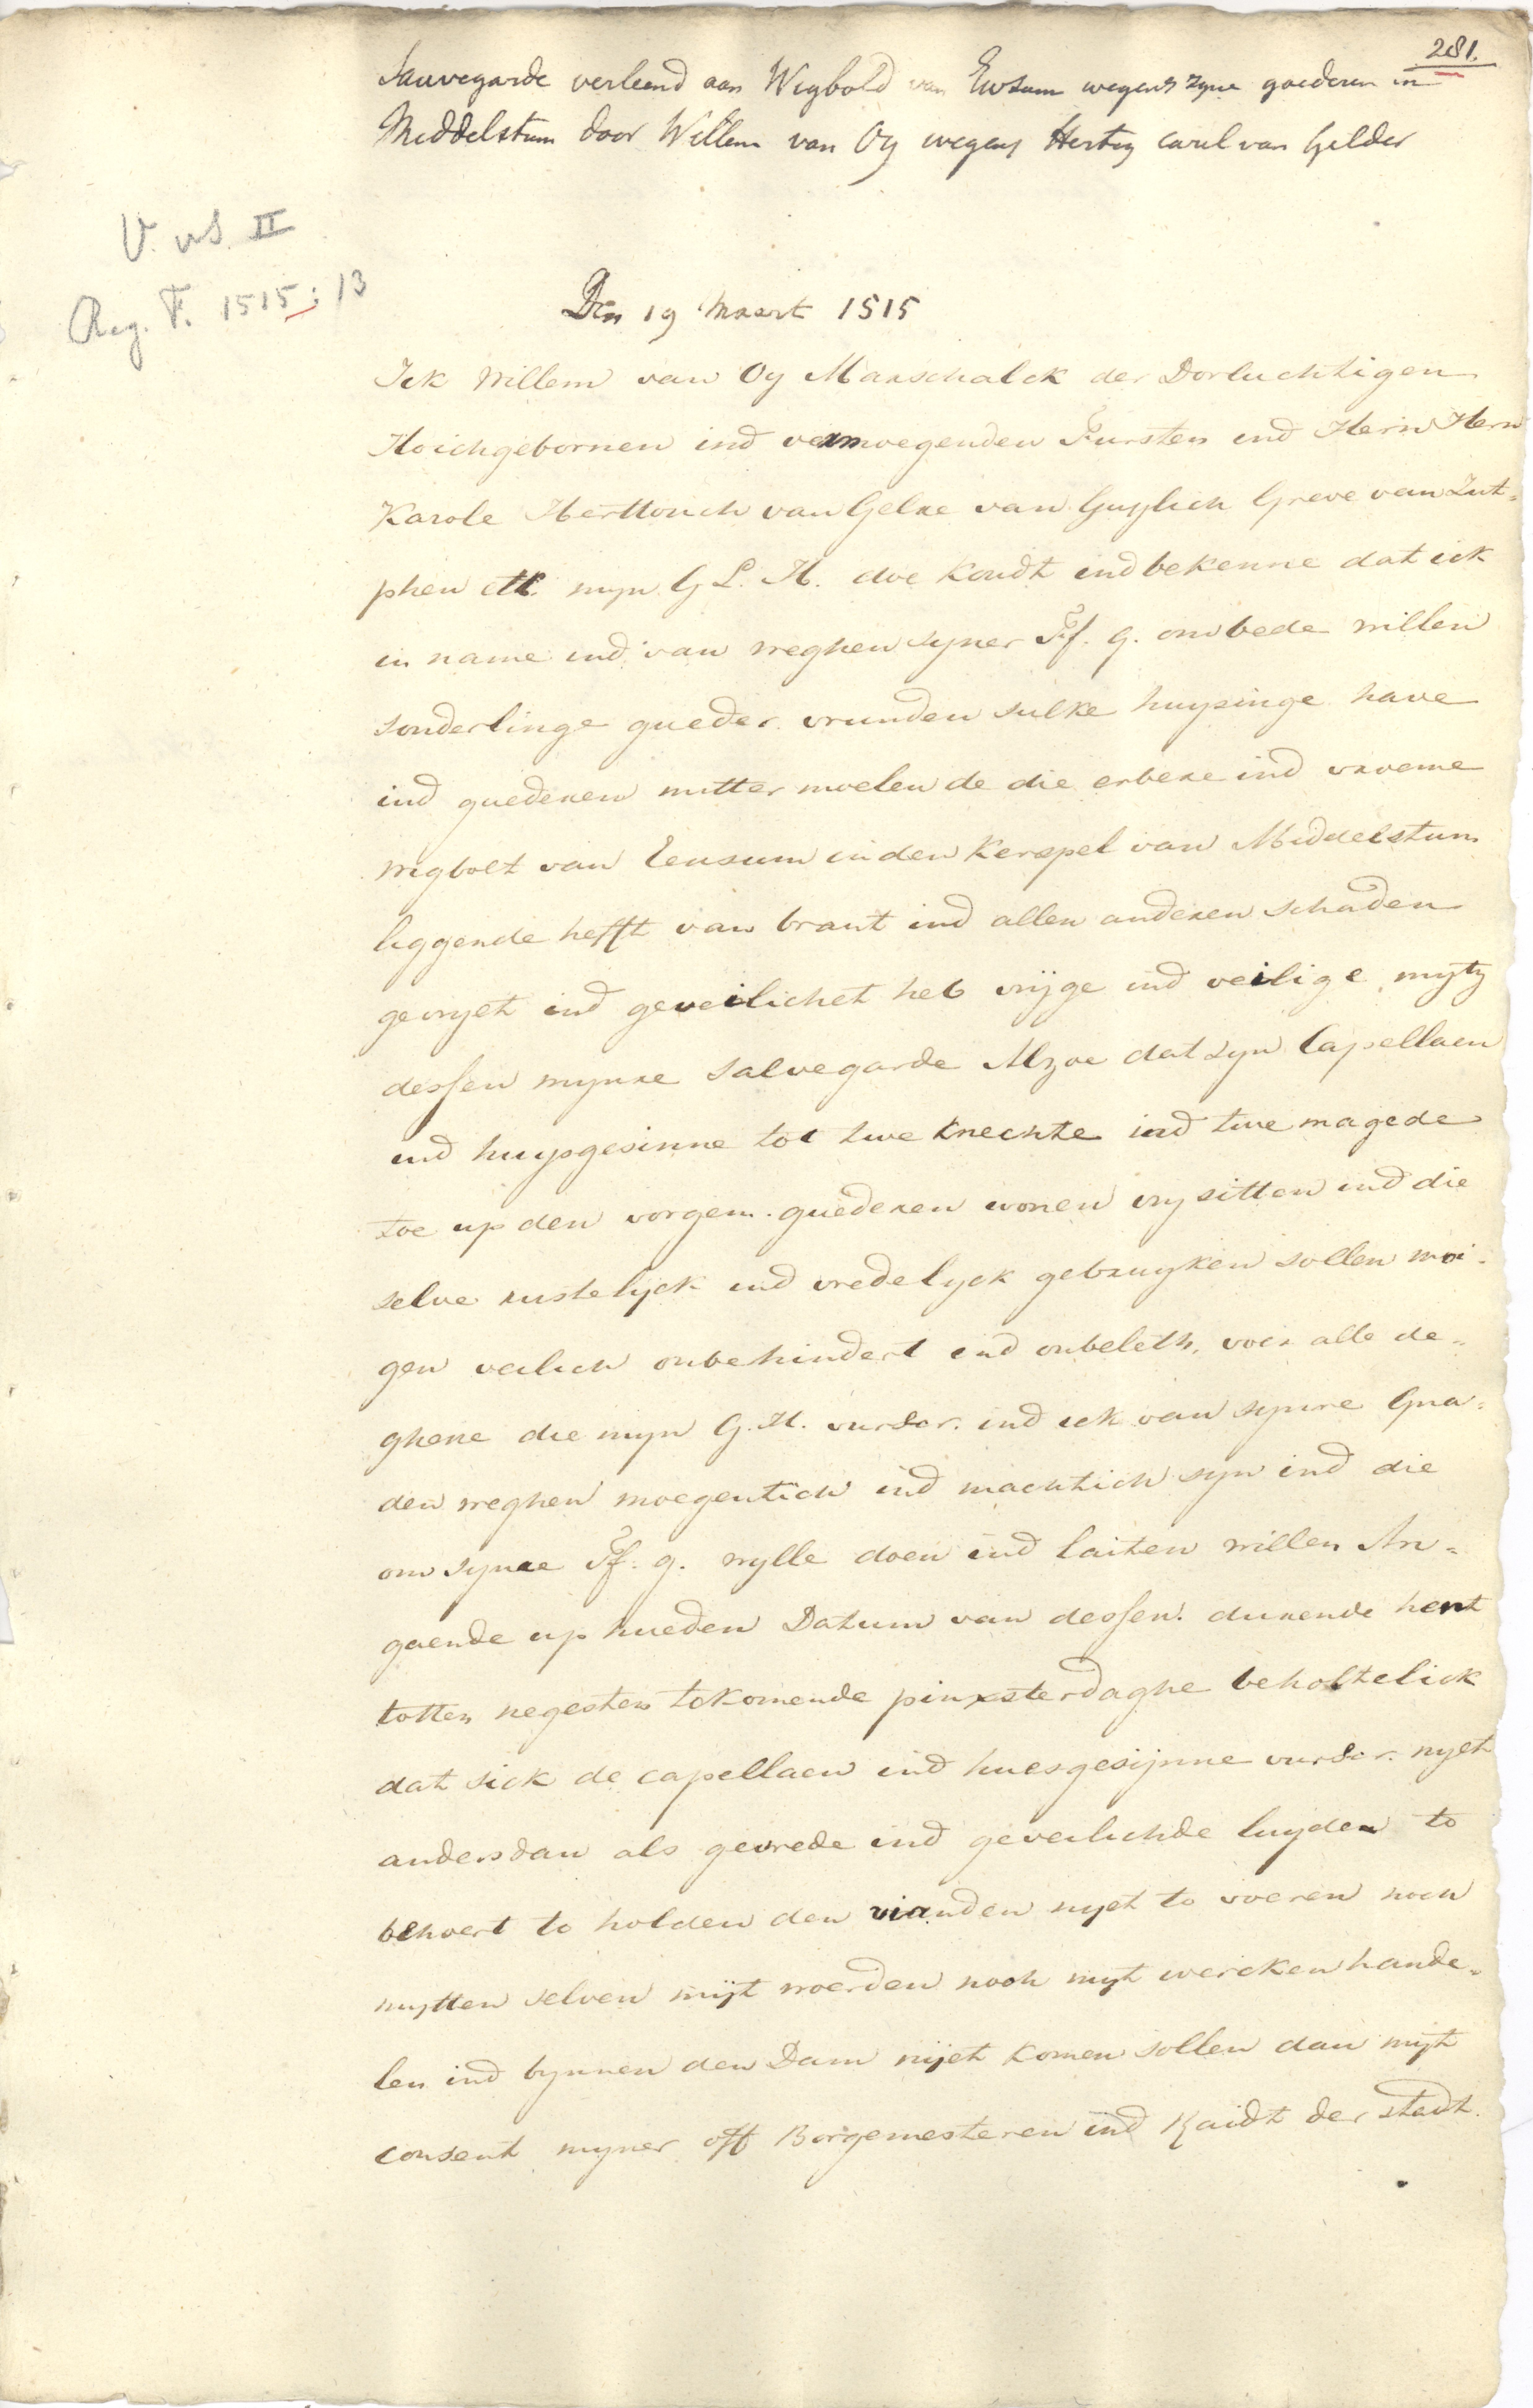 281.
Sauvegarde verleend aan Wigbold van Ewsum wegens zyne goederen in
Middelstum door Willem van Oy wegens Hertog Carel van Gelder
V. vS. II
Reg. F. 1515: 13
Den 19 Maart 1515
Ick Willem van Oy Marschalck der Dorluchtigen
Hoichgebornen ind vermoegenden Fursten ind Hern Hern
Karole Herttouch van Gelre van Guylich Greve van Zut-
phen etc. myn G L. H. doe kondt ind bekenne dat ick
in name ind van weghen syner Ff. g. om bede willen
sonderlinge gueder vrunden sulke huysinge have
ind guederen mitter moelen de die erbere ind vrome
Wigbolt van Eeusum in den Kerspel van Middelstum
liggende hefft van brant ind allen anderen schaden
gevryet ind geveilichet heb vrijge ind veilige mytz
dessen mynre salvegarde Alzoe dat syn Capellaen
ind huysgesinne tot twe knechte ind twe magede
toe up den vorgem. guederen wonen vry sitten ind die
selve rustelyck ind vredelyck gebruyken sollen moi-
gen veilich onbehindert ind onbeleth, voir alle de-
ghene die myn G. H. vurscr. ind ick van synre Gna-
den weghen moegentich ind machtich syn ind die
om synre Ff. g. wylle doen ind laiten willen An-
gaende up hueden Datum van dessen. durende hent
totten negesten tokomende pinxsterdaghe beholtelick
dat sick de capellaen ind huesgesijnne vurscr. nyet
anders dan als gevrede ind geveilichde luyden to
behoert to holden den vianden nyet to voeren noch
mytten selven mijt woerden noch myt wercken hande-
len ind bynnen den Dam nijet komen sollen dan mijt
consent myner off Borgemesteren ind Raidt der stadt